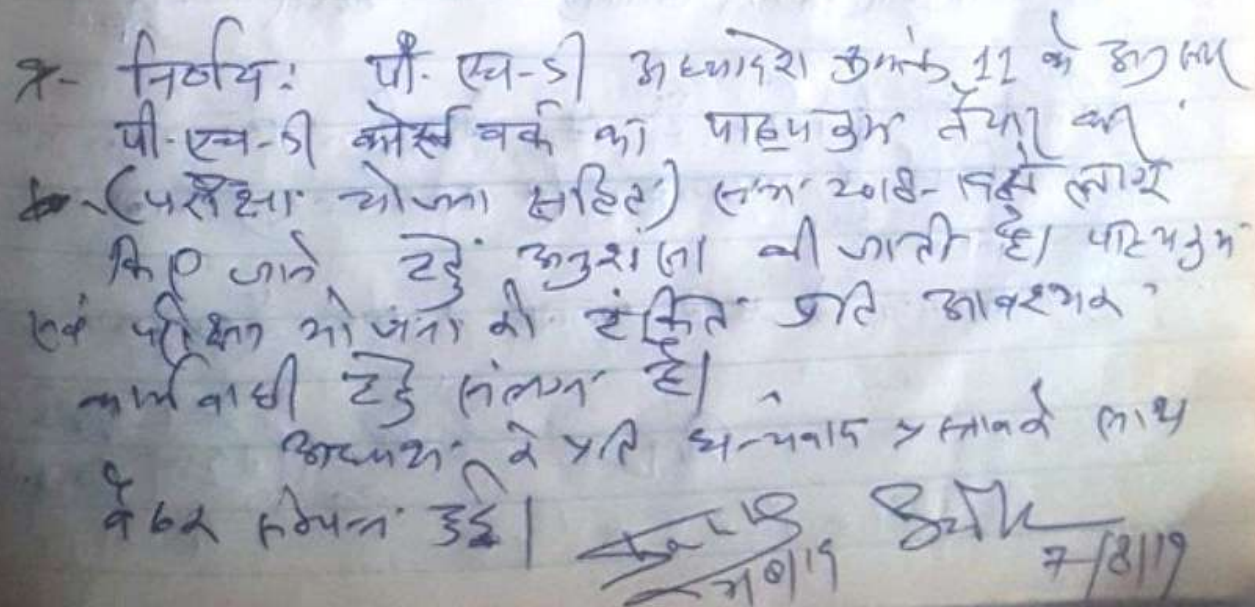 निर्णय: पी.एच-डी अध्यादेश क्रमांक 11 के अनुरूप
पी.एच-डी कोर्स वर्क का पाठ्यक्रम तैयार कर
(परीक्षा योजना सहित) सत्र 2018- से लागू
किए जाने हेतु अनुशंसा की जाती है। पाठ्यक्रम
एवं परीक्षा योजना की टंकित प्रति आवश्यक
कार्यवाही हेतु संलग्न है।
अध्यक्ष के प्रति धन्यवाद प्रस्ताव के साथ
बैठक संपन्न हुई।
7/8/19